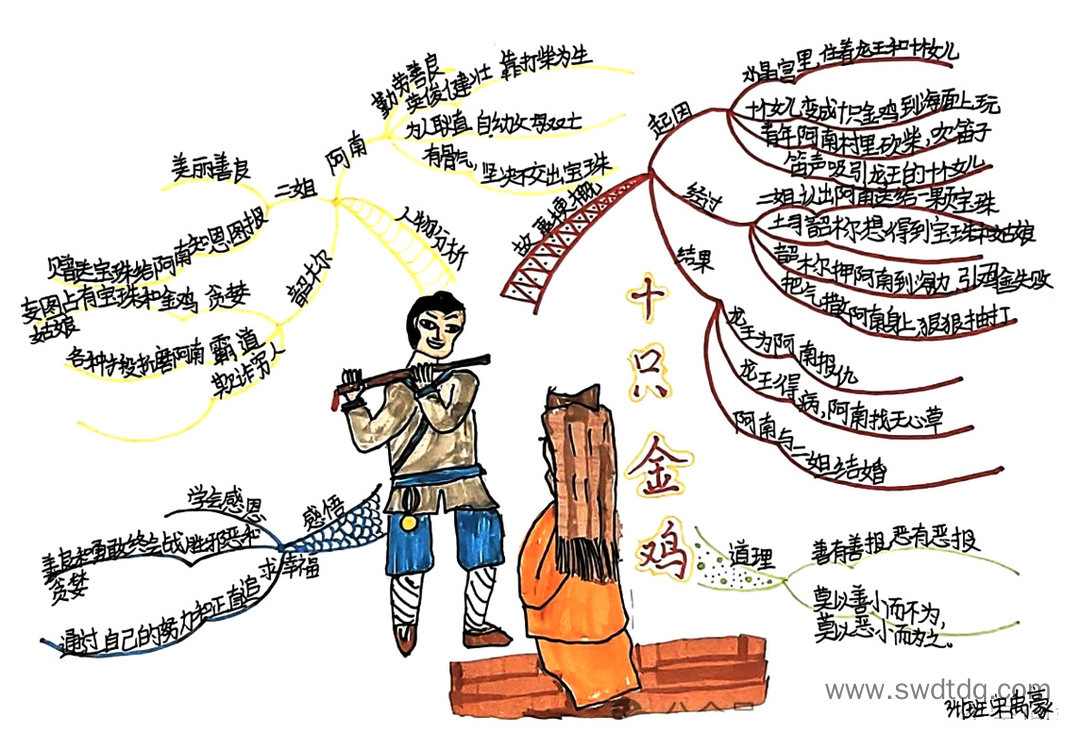 十只金鸡
故事梗概
起因
水晶宫里,住着龙王和十个女儿
十个女儿变成十只金鸡到海面上玩
青年阿南村里砍柴,吹笛子
笛声吸引龙王的十个女儿
经过
二姐认出阿南送给一颗宝珠
土司韶木尔想得到宝珠和姑娘
韶木尔押阿南到海边,引四金失败
把气撒阿南身上,狠狠抽打
结果
龙王为阿南报仇
龙王得病,阿南找无心草
阿南与二姐结婚
道理
善有善报恶有恶报
莫以善小而不为,
莫以恶小而为之。
人物分析
阿南
勤劳善良
英俊健壮 靠打柴为生
为人耿直 自幼父母双亡
有骨气,坚决不交出宝珠
二姐
美丽善良
知恩图报
赠送宝珠给阿南
韶木尔
妄图占有宝珠和金鸡 贪婪
姑娘
各种手段折磨阿南 霸道
欺诈穷人
感悟
学会感恩
善良和勇敢终会战胜邪恶和
贪婪
通过自己的努力和正直追
求幸福
www.swdtdg.com